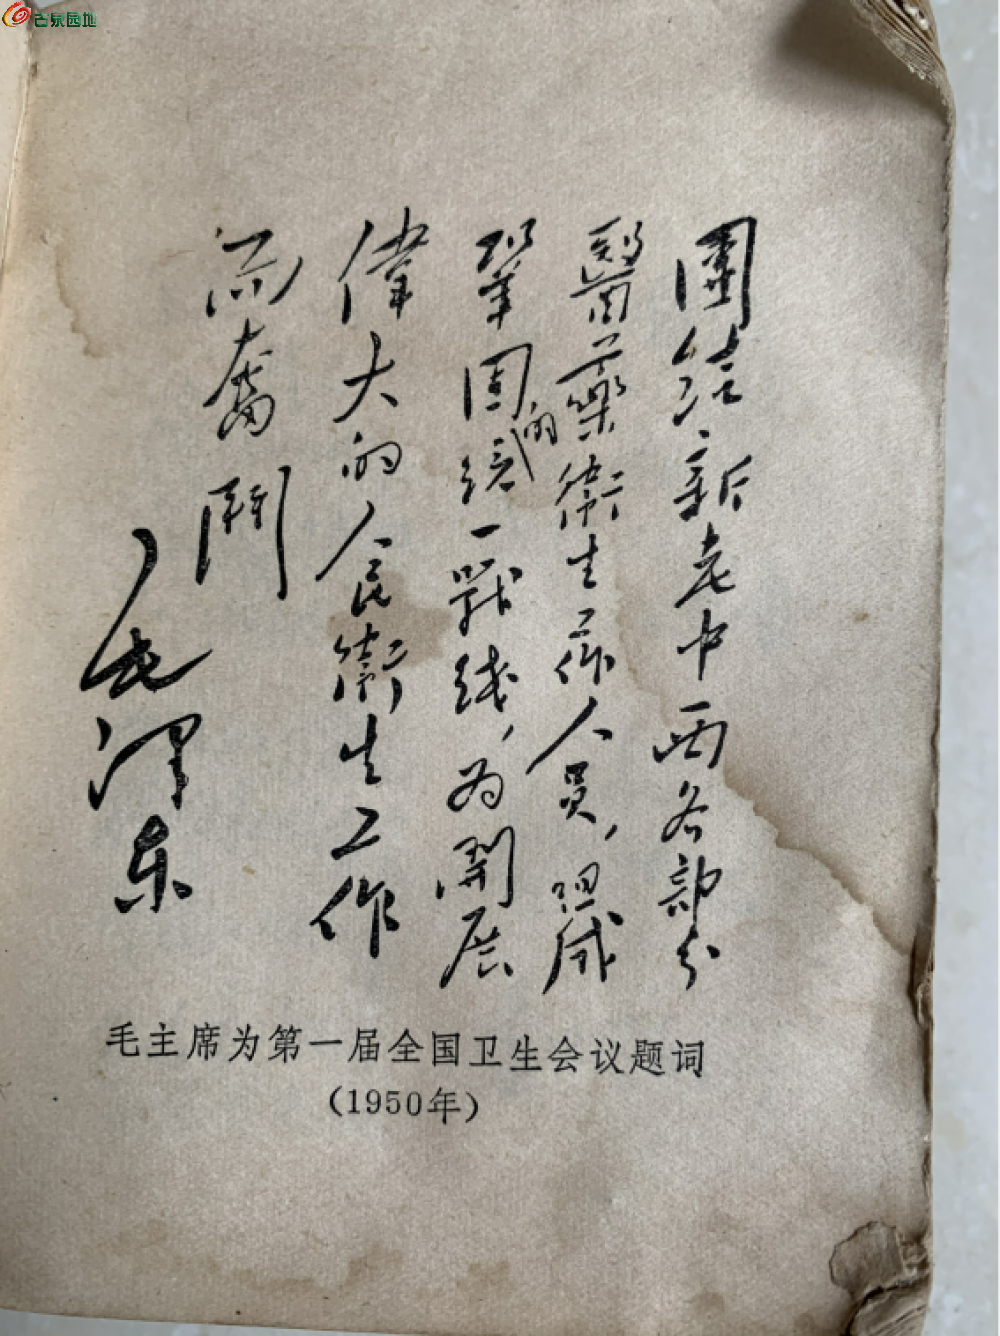 古泉园地
團结新老中西各部分
醫藥衛生工作人員，組成
鞏固的統一戰线，为開展
偉大的人民衛生工作
而奮鬥
毛泽东
毛主席为第一届全国卫生会议题词
(1950年)